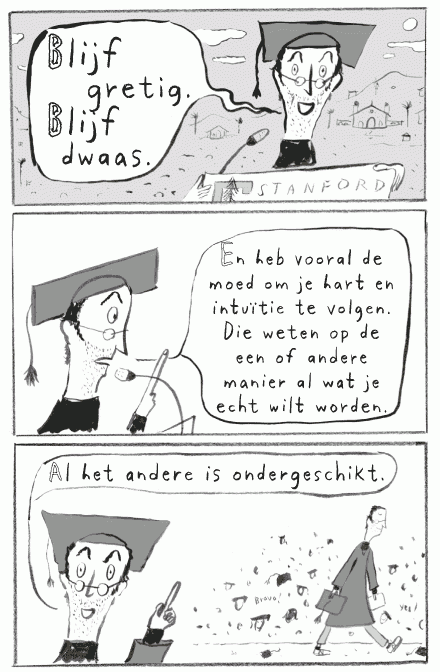 Blijf
gretig.
Blijf
dwaas.
STANFORD
En heb vooral de
moed om je hart en
intuïtie te volgen.
Die weten op de
een of andere
manier al wat je
echt wilt worden.
Al het andere is ondergeschikt.
Bravo!
yes!